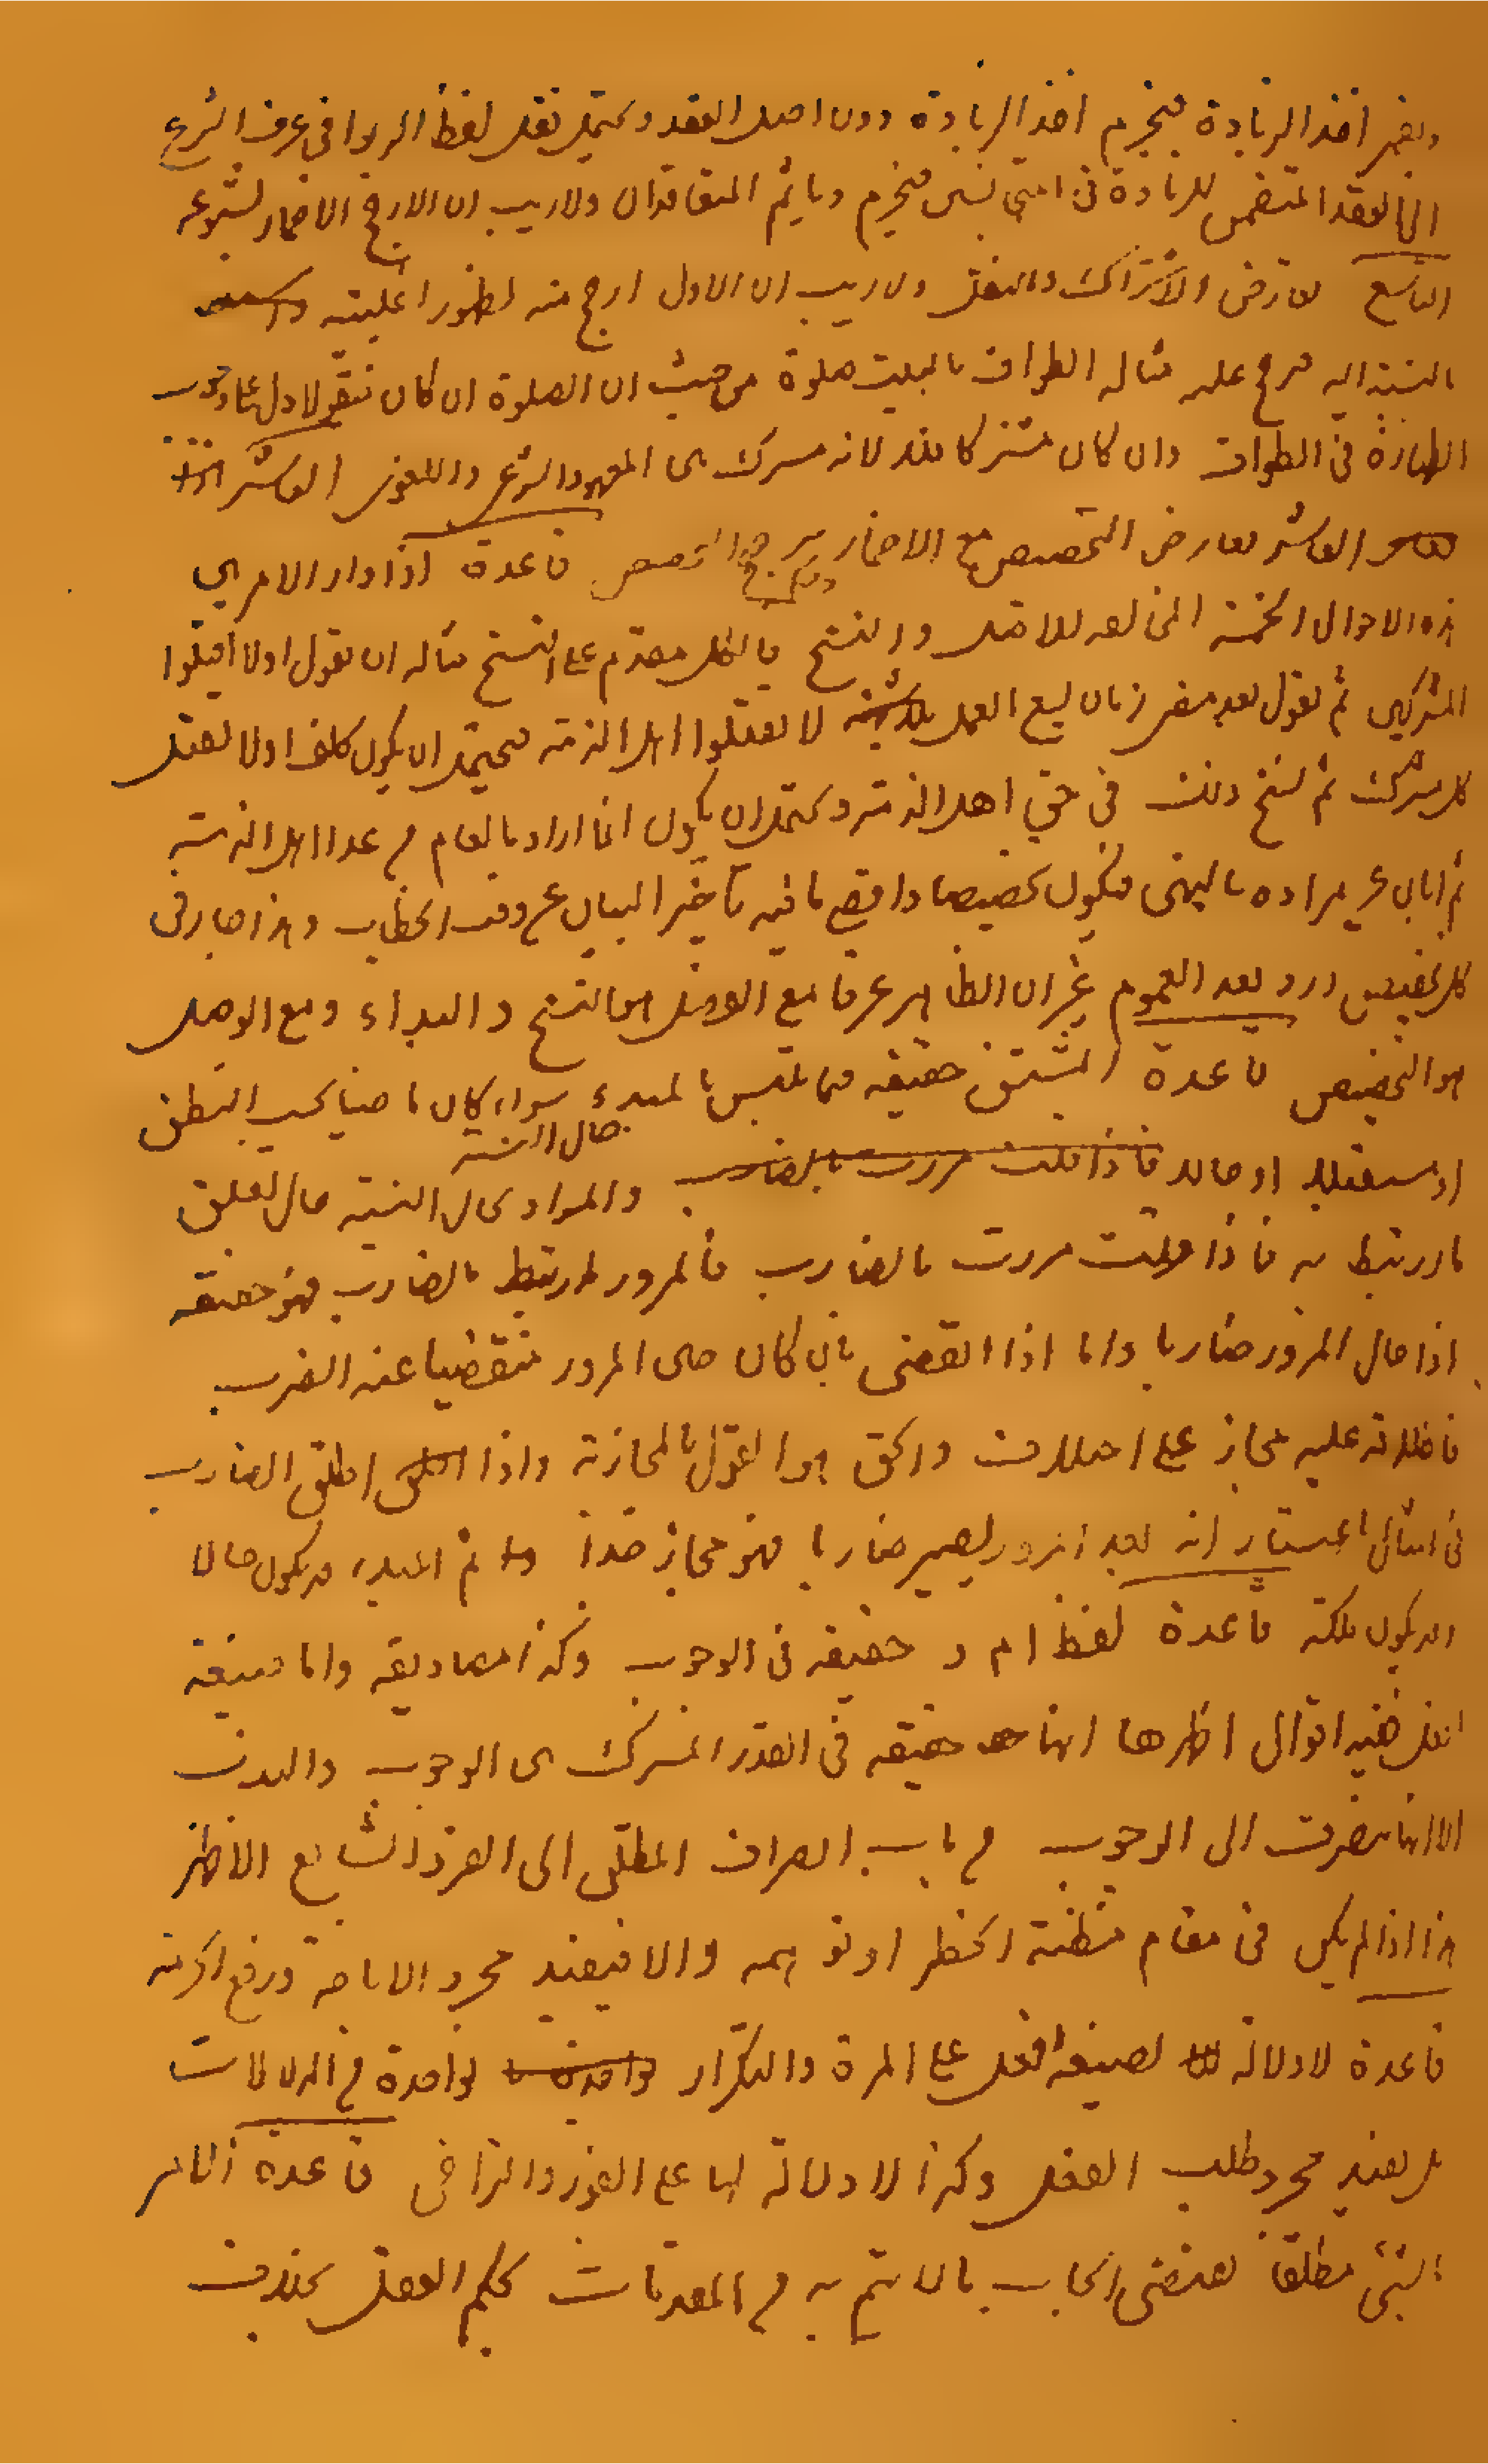 ويضمر اخذ الزيادة فيحرم اخذ الزيادة دون اصل العقد ويحتمل نقل لفظ الربوا في عرف الشرع
الى العقد المتضمن للزيادة في الجنسين فيحرم ويأثم المتعاقدان ولا ريب ان الارجح الاضمار لشيوعه
التاسع تعارض الاشتراك والنقل ولا ريب ان الاول ارجح منه لظهور اغلبيته
بالنسبة اليه فيرجح عليه مثاله الطواف بالبيت صلوة من حيث ان الصلوة ان كان منقولا دل على وجوب
الطهارة في الطواف وان كان مشتركا فلا لانه مشترك بين المعهود الشرعي واللغوي العاشر
العاشر تعارض التخصيص مع الاضمار ويرجح التخصيص قاعدة اذا دار الامر بين
هذه الاحوال الخمسة المخالفه للاصل والنسخ فالكل مقدم على النسخ مثاله ان يقول اولا اقتلوا
المشركين ثم يقول بعد مضى زمان يسع العمل لا تقتلوا اهل الذمة فيحتمل ان يكون كلف اولا بقتل
كل مشرك ثم نسخ ذلك في حق اهل الذمة ويحتمل ان يكون انما اراد بالعام من عدا اهل الذمة
ثم ابان عن مراده بالنهى فيكون تخصيصا واقع ما فيه تأخير البيان عن وقت الخطاب وهذا جار في
كل تخصيص ورد بعد العموم غير ان الظاهر عرفا مع الفصل هو النسخ والبداء ومع الوصل
هو التخصيص قاعدة المشتق حقيقه فيما تلبس بالمبدء حال النسبة سواء كان ماضيا بحسب النطق
او مستقبلا او حالا فاذا قلت مررت بالضارب والمراد بحال النسبة حال تعلق
ما ارتبط به فاذا قلت مررت بالضارب فالمرور المرتبط بالضارب فهو حقيقه
اذا حال المرور ضاربا واما اذا انقضى بان كان حين المرور منقضيا عنه الضرب
فاطلاقه عليه مجاز على اختلاف والحق هو القول بالمجازية واذا اطلق الضارب
في المثال باعتبار انه بعد المرور يصير ضاربا فهو مجاز جدا ثم المبدء قد يكون حالا
او يكون ملكة قاعدة لفظ ا م ر حقيقه في الوجوب وكذا مصاديقه واما صيغة
افعل ففيه اقوال اظهرها انها حقيقه في القدر المشترك بين الوجوب والندب
الا انها تنصرف الى الوجوب من باب انصراف المطلق الى الفرد الشايع الاظهر
هذا اذا لم يكن في مقام مظنة الحظر او توهمه والا فيفيد مجرد الاباحة ورفع الحرمة
قاعدة لا دلالة لصيغة افعل على المرة والتكرار بواحدة من الدلالات
بل يفيد مجرد طلب الفعل وكذا لا دلالة لها على الفور والتراخى قاعدة الامر
بالشئ مطلقا يقتضى ايجاب ما لا يتم به من المقدمات بحكم العقل بخلاف